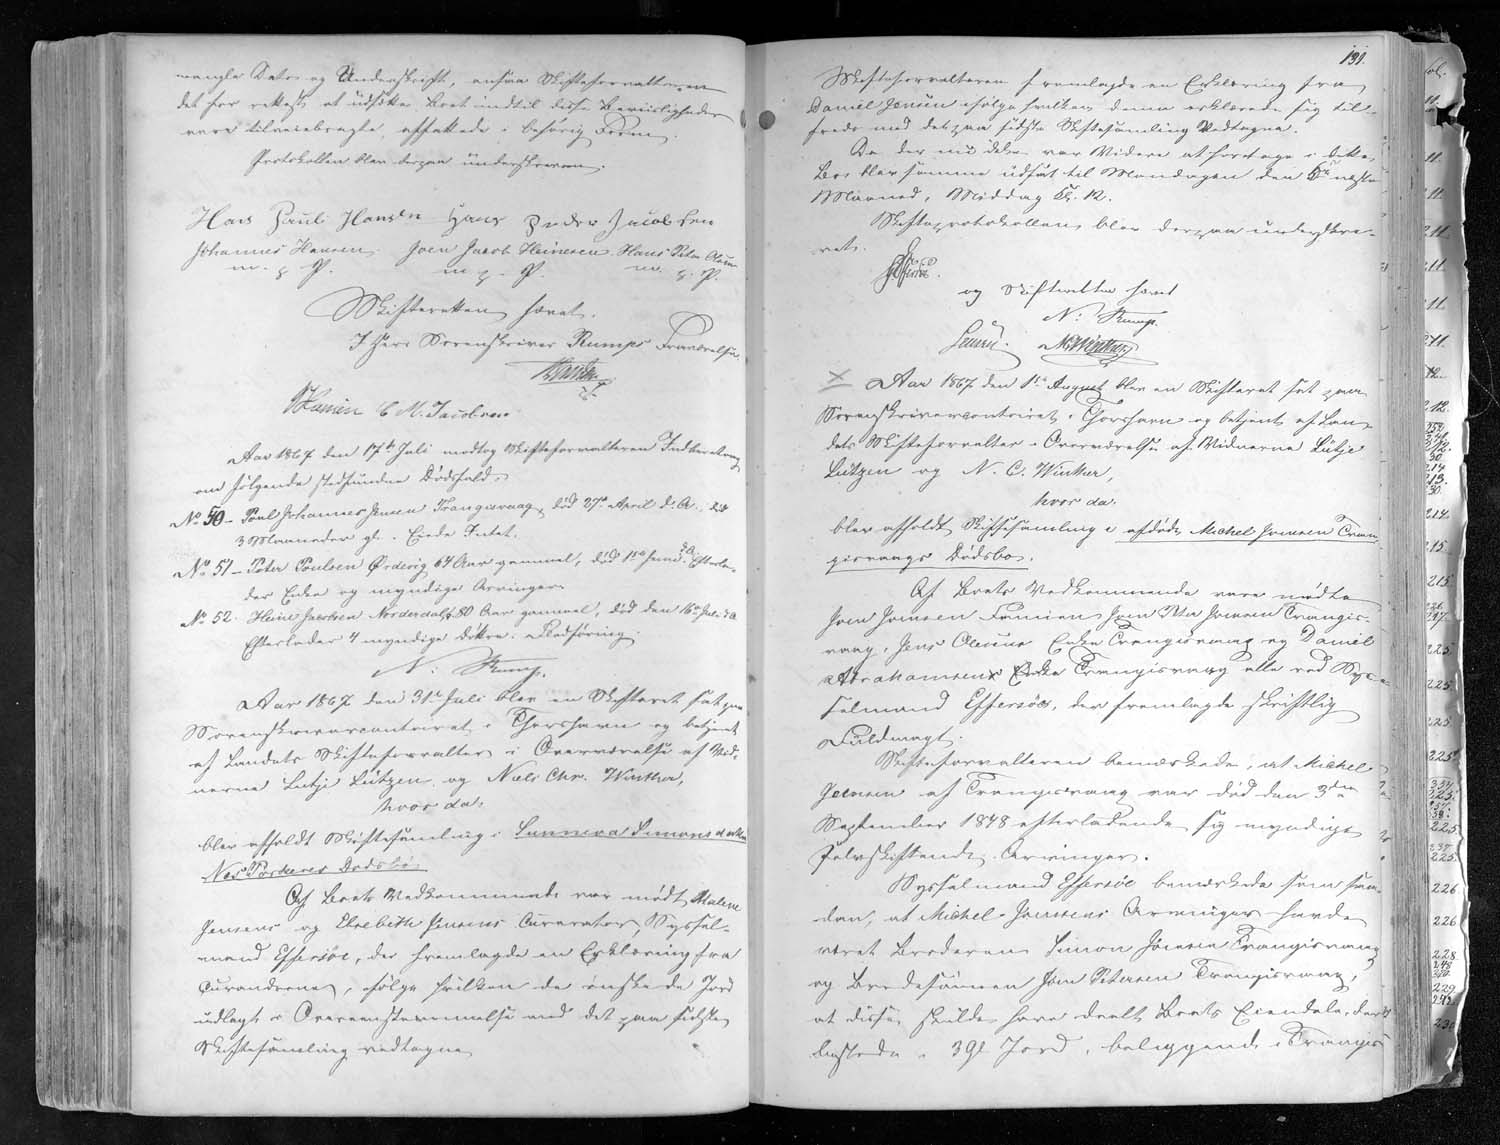 mangle Dato og Underskrift, ansaa Skifteforvalteren
det for rettest at udsætte Boet indtil disse Bevisligheder
vare tilveiebragte, affattede i behørig Form.
Protokollen blev derpaa underskreven.
Hans Pauli Hansen Hans Peder Jacobsen
Johannes Hansen. Joen Jacob Heinesen. Hans Peter
m. p. P. m. p. P. m. p. P.
Skifteretten hævet.
I Herr Sorenskriver Rumps Fraværelse
Hansen C M. Jacobsen
Aar 1867 den 17de Juli modtog Skifteforvalteren Indberetning
om følgende stedfundne Dødsfald:
No. 50 - Poul Johannes Jensen Trangisvaag, død 27de April d. A.,
3 Maaneder gl. Eiede Intet.
No. 51 - Peter Poulsen Ørdevig 64 Aar gammel, død 1ste Juni d.A. Efterla-
der Enke og myndige Arvinger.
No. 52. Heine Jacobsen Nørderdahl, 80 Aar gammel, død den 16de Juli d.A.
Efterlader 4 myndige Døttre. Flodføring.
N: Rump.
Aar 1867 den 31te Juli blev en Skifteret sat paa
Sorenskrivercontoiret i Thorshavn og betjent
af Landets Skifteforvalter i Overværelse af Vid-
nerne Lutje Lützen og Niels Chr. Winther,
hvor da:
blev afholdt Skiftesamling i Sunneva Simonsdatter
Næs Dødsbo.
Af Boets Vedkommende var mødt Malene
Jensens og Elsebeth Jensens Curator, Syssel-
mand Effersøe, der fremlagde en Erklæring fra
Curanderne, ifølge hvilken de ønskede Jord
udlagt i Overeensstemmelse med det paa sidste
Skiftesamling vedtagne

131.
Skifteforvalteren fremlagde en Erklæring fra
Daniel Jensen ifølge hvilken denne erklærede sig til-
freds med det paa sidste Skiftesamling Vedtagne.
Da der nu ikke var Videre at foretage i dette
Bo blev samme udsat til Mandagen den 5te næste
Maaned, Middag Kl. 12.
Skifteprotokollen blev derpaa underskre-
vet.
og Skifteretten hævet
N: Rump.
Lützen. N. Winther
X Aar 1867 den 1ste August blev en Skifteret sat paa
Sorenskrivercontoiret i Thorshavn og betjent af Lan-
dets Skifteforvalter i Overværelse af Vidnerne Lütje
Lützen og N. C. Winther,
hvor da:
blev afholdt Skiftesamling i afdøde Michel Joensen Tran-
gisvaags Dødsbo.
Af Boets Vedkommende vare mødte
Joen Joensen Famien, Joen Peter Joensen Trangis-
vaag, Jens Olesens Enke Trangisvaag og Daniel
Abrahamsens Enke Trangisvaag alle ved Sys-
selmand Effersøe, der fremlagde skriftlig
Fuldmagt.
Skifteforvalteren bemærkede, at Michel
Joensen af Trangisvaag var død den 3die
September 1848 efterladende sig myndige
selvskiftende Arvinger.
Sysselmand Effersøe bemærkede som saa-
dan, at Michel Joensens Arvinger havde
været Broderen Simon Joensen Trangisvaag
og Brodersønnen Joen Petersen Trangisvaag,
at disse skulde have deelt Boets Eiendele, der
bestode i 3 Gl Jord, beliggende i Trangis-